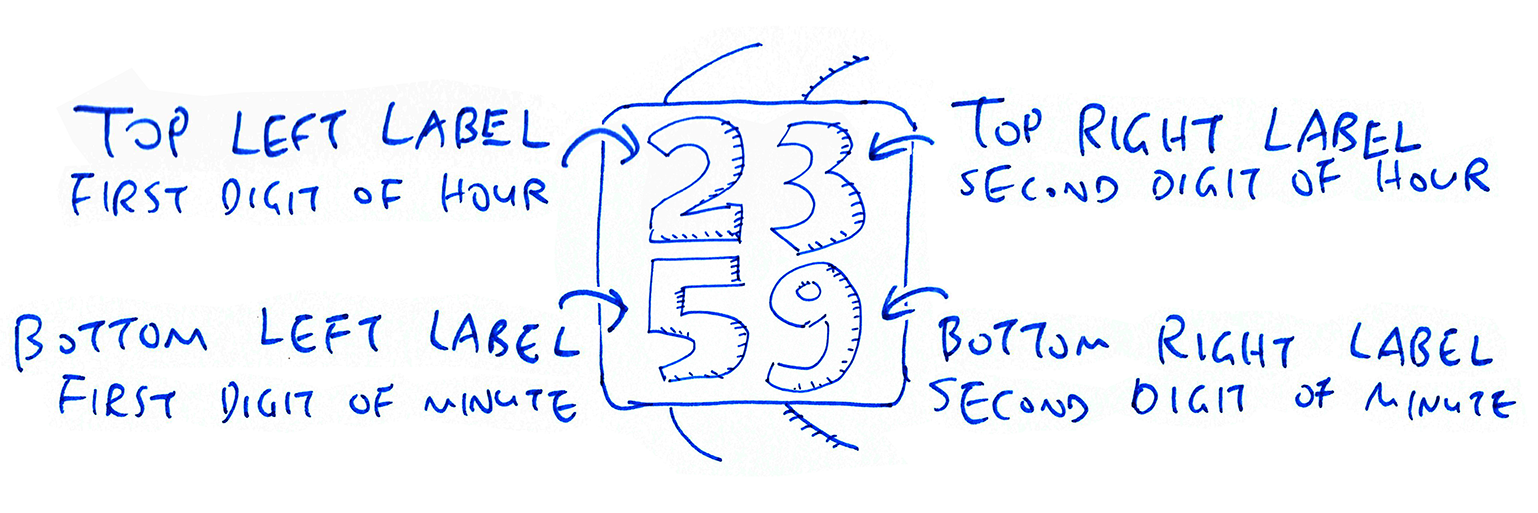 TOP LEFT LABEL
FIRST DIGIT OF HOUR
23
TOP RIGHT LABEL
SECOND DIGIT OF HOUR
BOTTOM LEFT LABEL
FIRST DIGIT OF MINUTE
59
BOTTOM RIGHT LABEL
SECOND DIGIT OF MINUTE